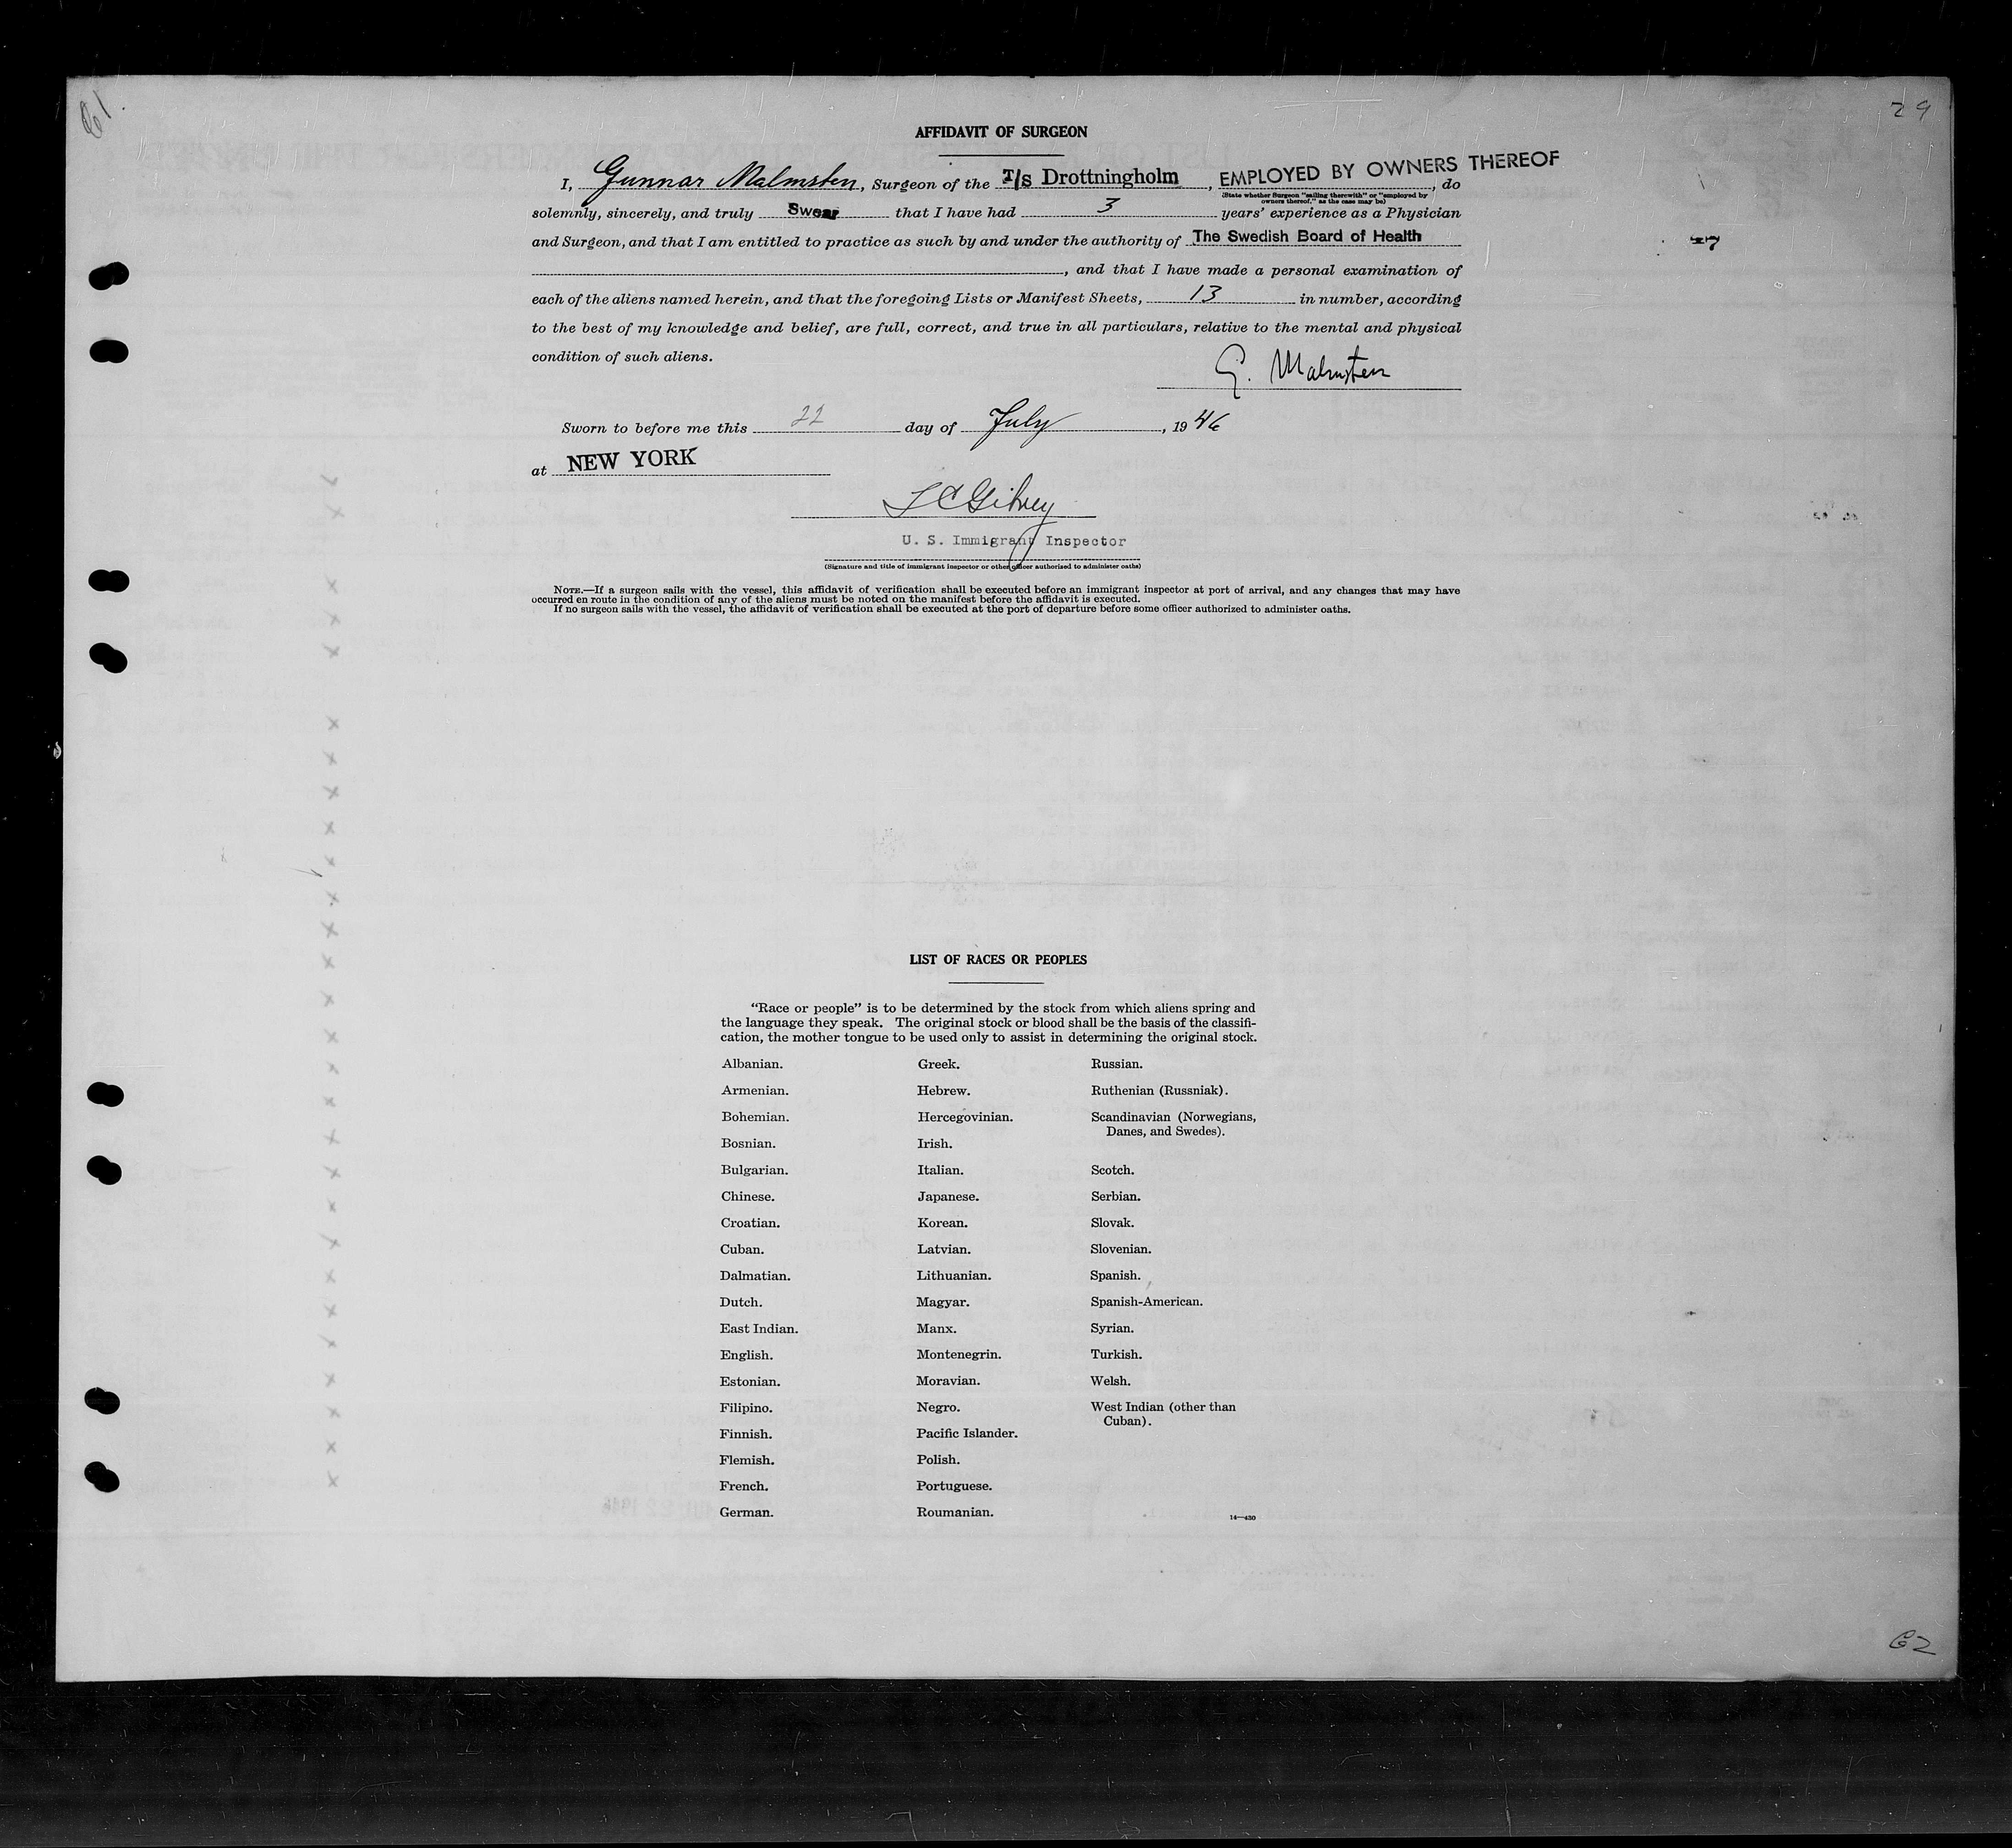 61.
29
AFFIDAVIT OF SURGEON
I, Gunnar Malmsten, Surgeon of the T/S Drottningholm, EMPLOYED BY OWNERS THEREOF, do
(State whether Surgeon "sailing therewith" or "employed by
owners thereof," as the case may be)
solemnly, sincerely, and truly Swear that I have had 3 years' experience as a Physician
and Surgeon, and that I am entitled to practice as such by and under the authority of The Swedish Board of Health
, and that I have made a personal examination of
each of the aliens named herein, and that the foregoing Lists or Manifest Sheets, 13 in number, according
to the best of my knowledge and belief, are full, correct, and true in all particulars, relative to the mental and physical
condition of such aliens.
G. Malmsten
Sworn to before me this 22 day of July, 1946
at NEW YORK
U. S. Immigrant Inspector
(Signature and title of immigrant inspector or other officer authorized to administer oaths)
NOTE.—If a surgeon sails with the vessel, this affidavit of verification shall be executed before an immigrant inspector at port of arrival, and any changes that may have
occurred en route in the condition of any of the aliens must be noted on the manifest before the affidavit is executed.
If no surgeon sails with the vessel, the affidavit of verification shall be executed at the port of departure before some officer authorized to administer oaths.
LIST OF RACES OR PEOPLES
"Race or people" is to be determined by the stock from which aliens spring and
the language they speak. The original stock or blood shall be the basis of the classifi-
cation, the mother tongue to be used only to assist in determining the original stock.
Albanian.
Armenian.
Bohemian.
Bosnian.
Bulgarian.
Chinese.
Croatian.
Cuban.
Dalmatian.
Dutch.
East Indian.
English.
Estonian.
Filipino.
Finnish.
Flemish.
French.
German.
Greek.
Hebrew.
Hercegovinian.
Irish.
Italian.
Japanese.
Korean.
Latvian.
Lithuanian.
Magyar.
Manx.
Montenegrin.
Moravian.
Negro.
Pacific Islander.
Polish.
Portuguese.
Roumanian.
Russian.
Ruthenian (Russniak).
Scandinavian (Norwegians,
Danes, and Swedes).
Scotch.
Serbian.
Slovak.
Slovenian.
Spanish.
Spanish-American.
Syrian.
Turkish.
Welsh.
West Indian (other than
Cuban).
14—430
62